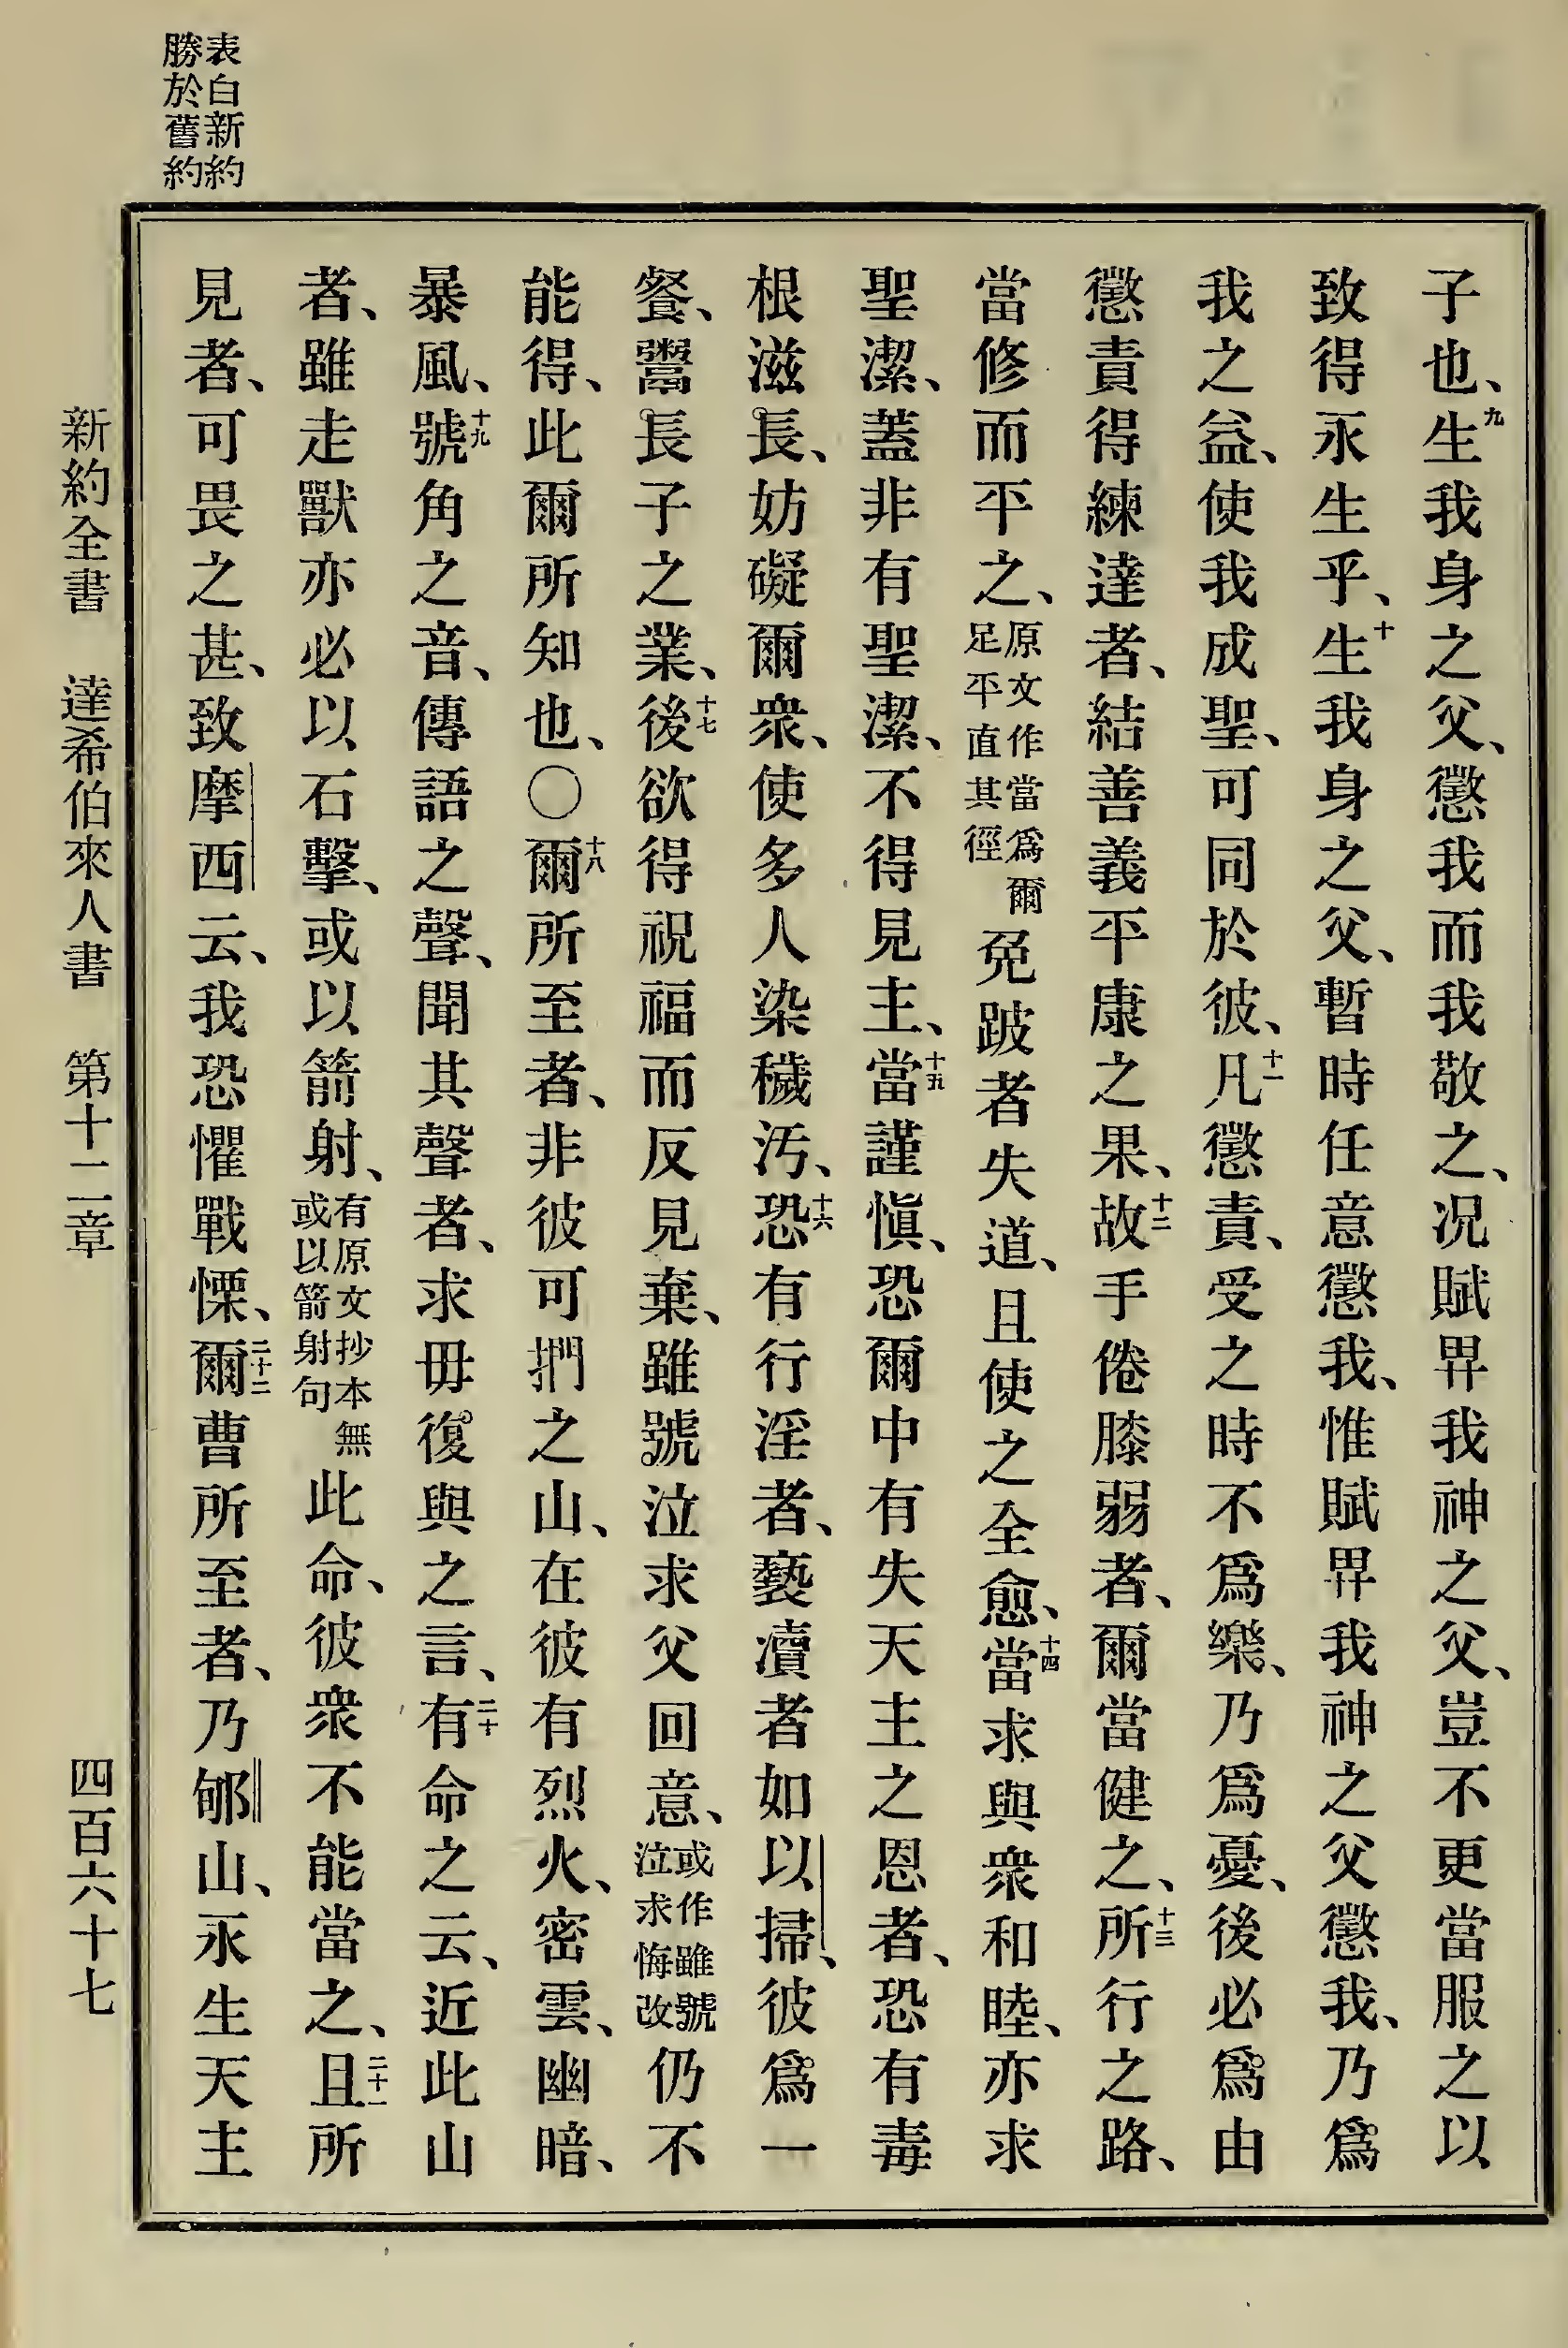 表白新約
勝於舊約
子也、九生我身之父、懲我而我敬之、况賦畀我神之父、豈不更當服之以
致得永生乎、十生我身之父、暫時任意懲我、惟賦畀我神之父懲我、乃爲
我之益、使我成聖、可同於彼、十一凡懲責、受之時不爲樂、乃爲憂、後必爲由
懲責得練達者、結善義平康之果、十二故手倦膝弱者、爾當健之、十三所行之路、
當修而平之、原文作當爲爾足平直其徑免跛者失道、且使之全愈、十四當求與衆和睦、亦求
聖潔、蓋非有聖潔、不得見主、十五當謹愼、恐爾中有失天主之恩者、恐有毒
根滋長、妨礙爾衆、使多人染穢汚、十六恐有行淫者、褻瀆者如以掃、彼爲一
餐、鬻長子之業、十七後欲得祝福而反見棄、雖號泣求父回意、或作雖號泣求悔改仍不
能得、此爾所知也、○十八爾所至者、非彼可捫之山、在彼有烈火、密雲、幽暗、
暴風、十九號角之音、傳語之聲、聞其聲者、求毋復與之言、二十有命之云、近此山
者、雖走獸亦必以石擊、或以箭射、有原文抄本無或以箭射句此命、彼衆不能當之、二十一且所
見者、可畏之甚、致摩西云、我恐懼戰慄、二十二爾曹所至者、乃郇山、永生天主
新約全書 達希伯來人書 第十二章 四百六十七